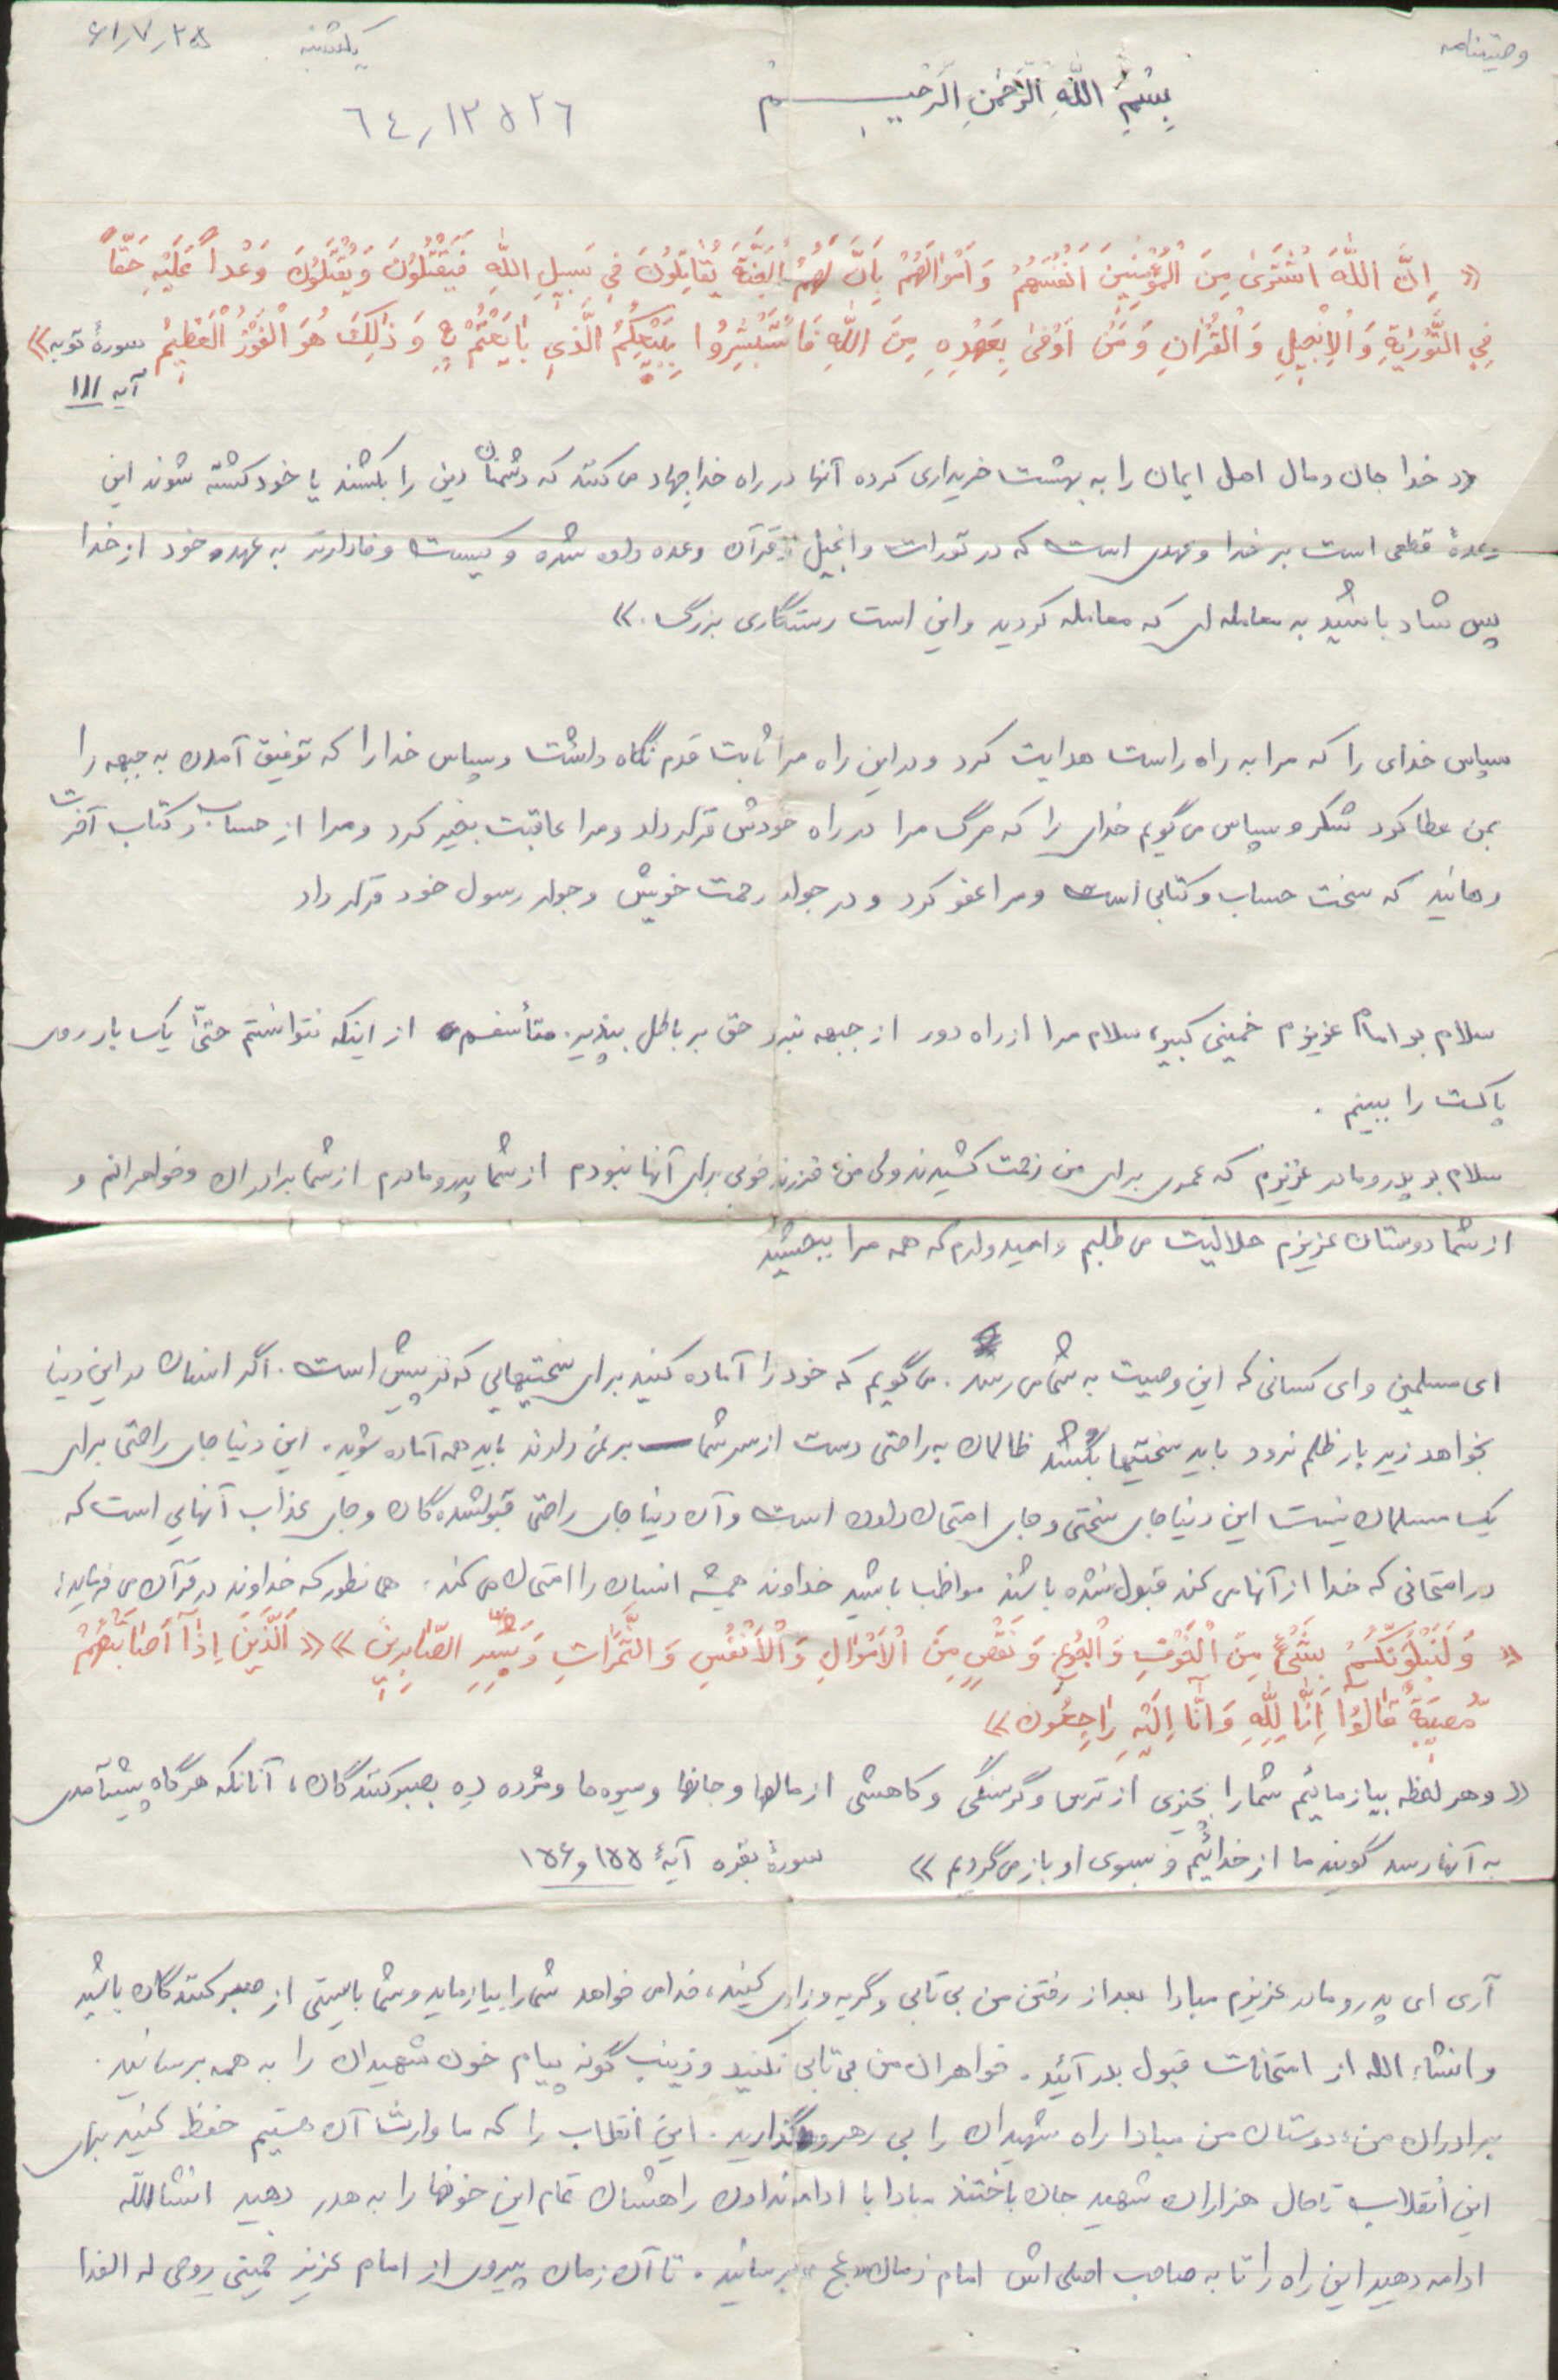 وصیتنامه
یکشنبه
۶۱٫۷٫۲۵
بِسْمِ اللهِ الرَّحْمٰنِ الرَّحیــــــم
٦٤٫١٢٥٢٦
« اِنَّ اللّٰهَ اشْتَرَىٰ مِنَ الْمُؤْمِنِينَ اَنْفُسَهُمْ وَ اَمْوٰالَهُمْ بِاَنَّ لَهُمُ الْجَنَّةَ يُقٰاتِلُونَ فِي سَبِيلِ اللّٰهِ فَيَقْتُلُونَ وَ يُقْتَلُونَ وَعْداً عَلَيْهِ حَقّاً
فِي التَّوْرٰيةِ وَ الْاِنْجِيلِ وَ الْقُرْاٰنِ وَ مَنْ اَوْفىٰ بِعَهْدِهِ مِنَ اللّٰهِ فَاسْتَبْشِرُوا بِبَيْعِكُمُ الَّذِي بٰايَعْتُمْ بِهِ وَ ذٰلِكَ هُوَ الْفَوْزُ الْعَظِيمُ سورهٔ توبه»
آیه ۱۱۱
«خدا جان و مال اهل ایمان را به بهشت خریداری کرده آنها در راه خدا جهاد می کنند که دشمنان دین را بکشند یا خود کشته شوند این
وعدهٔ قطعی است بر خدا و عهدی است که در تورات و انجیل و قرآن وعده داده شده و کیست وفادارتر به عهد خود از خدا
پس شاد باشید به معامله ای که معامله کردید و این است رستگاری بزرگ.»
سپاس خدای را که مرا به راه راست هدایت کرد و در این راه مرا ثابت قدم نگاه داشت و سپاس خدا را که توفیق آمدن به جبهه را
بمن عطا کرد شکر و سپاس می گویم خدای را که مرگ مرا در راه خودش قرار داد و مرا عاقبت بخیر کرد و مرا از حساب و کتاب آخرت
رهانید که سخت حساب و کتابی است و مرا عفو کرد و در جوار رحمت خویش و جوار رسول خود قرار داد
سلام بر امام عزیزم خمینی کبیر، سلام مرا از راه دور از جبهه نبرد حق بر باطل بپذیر. متأسفم از اینکه نتوانستم حتّی یک بار روی
پاکت را ببینم .
سلام بر پدر و مادر عزیزم که عمری برای من زحمت کشیدند ولی من فرزند خوبی برای آنها نبودم از شما پدر و مادرم از شما برادران و خواهرانم و
از شما دوستان عزیزم حلالیت می طلبم و امید دارم که همه مرا ببخشید
ای مسلمین و ای کسانی که این وصیت به شما می رسد . می گویم که خود را آماده کنید برای سختیهایی که در پیش است . اگر انسان در این دنیا
بخواهد زیر بار ظلم نرود باید سختیها بکشد ظالمان به راحتی دست از سر شما بر نمی دارند باید همه آماده شوید. این دنیا جای راحتی برای
یک مسلمان نیست این دنیا جای سختی و جای امتحان دادن است و آن دنیا جای راحتی قبولشده گان و جای عذاب آنهایی است که
در امتحانی که خدا از آنها می کند قبول نشده باشند مواظب باشید خداوند همیشه انسان را امتحان می کند . همانطور که خداوند در قرآن می فرماید:
« وَ لَنَبْلُوَنَّكُمْ بِشَىْءٍ مِنَ الْخَوْفِ وَ الْجُوعِ وَ نَقْصٍ مِنَ الْاَمْوٰالِ وَ الْاَنْفُسِ وَ الثَّمَرٰاتِ وَ بَشِّرِ الصّٰابِرِينَ » « اَلَّذِينَ اِذٰا اَصٰابَتْهُمْ
مُصِيبَةٌ قٰالُوا اِنّٰا لِلّٰهِ وَ اِنّٰا اِلَيْهِ رٰاجِعُون»
« و هر لحظه بیازمائیم شما را بچیزی از ترس و گرسنگی و کاهشی از مالها و جانها و میوه ها و مژده ده بصبر کنندگان، آنانکه هرگاه پیشآمدی
به آنها رسد گویند ما از خدائیم و بسوی او باز می گردیم » سورهٔ بقره آیهٔ ۱۵۵ و ۱۵۶
آری ای پدر و مادر عزیزم مبادا بعد از رفتن من بی تابی و گریه و زاری کنید، خدا می خواهد شما را بیازماید و شما بایستی از صبر کنندگان باشید
و انشاء الله از امتحانات قبول بدر آئید . خواهران من بی تابی نکنید و زینب گونه پیام خون شهیدان را به همه برسانید .
برادران من، دوستان من مبادا راه شهیدان را بی رهرو گذارید . این انقلاب را که ما وارث آن هستیم حفظ کنید برای
این انقلاب تا حال هزاران شهید جان باختند مبادا با ادامه ندادن راهشان تمام این خونها را به هدر دهید انشاالله
ادامه دهید این راه را تا به صاحب اصلی اش امام زمان «عج» برسانید . تا آن زمان پیروی از امام عزیز خمینی روحی له الفدا